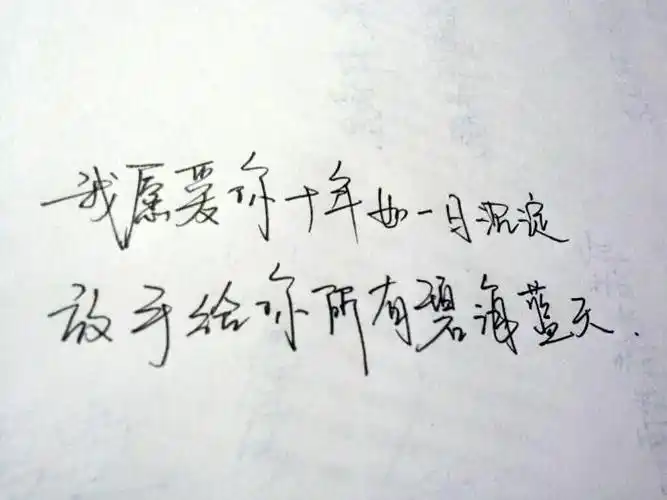 我愿爱你十年如一日沉淀
放手给你所有碧海蓝天.